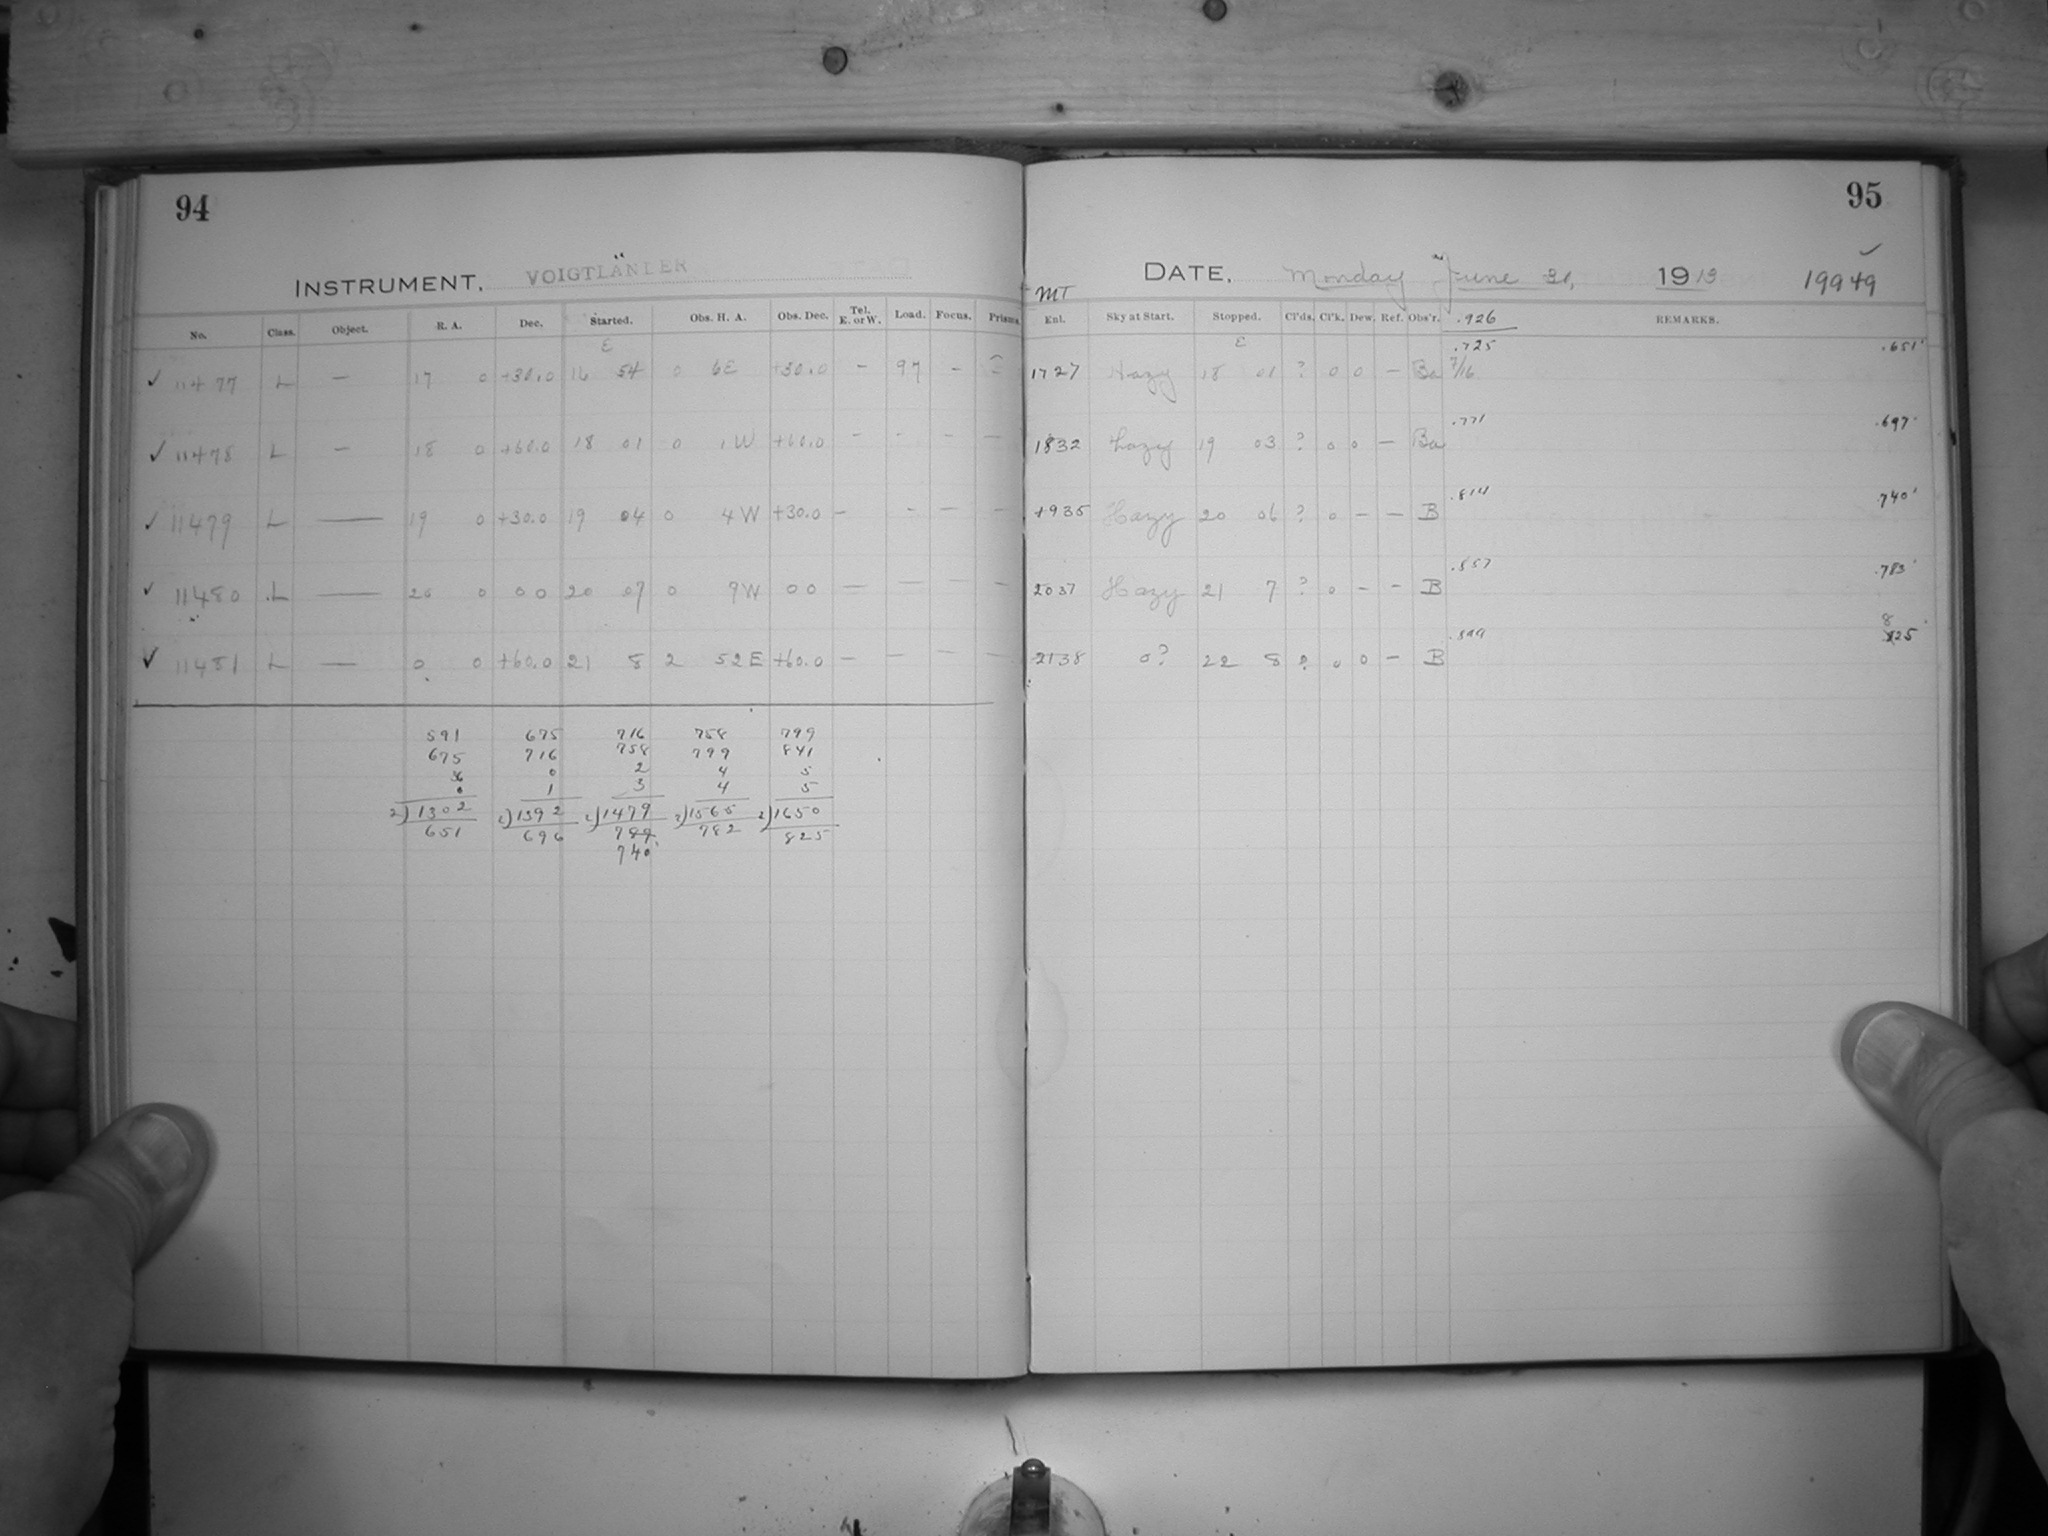 94
INSTRUMENT, VOIGTLÄNDER
No. Class. Object. R. A. Dec. Started. Obs. H. A. Obs. Dec. Tel. E. or W. Load. Focus. Prisms
E
✓ 11477 L — 17 0 +30.0 16 54 0 6E +30.0 — 97 —
✓ 11478 L — 18 0 +60.0 18 01 0 1W +60.0 — — — —
✓ 11479 L — 19 0 +30.0 19 04 0 4W +30.0 — — — —
✓ 11480 L — 20 0 0 0 20 07 0 7W 0 0 — — — —
✓ 11481 L — 0 0 +60.0 21 8 2 52E +60.0 — — — —
591 675 716 758 799
675 716 758 799 841
36 0 2 4 5
0 1 3 4 5
2)1302 2)1392 2)1479 2)1565 2)1650
651 696 789 782 825
740
95
✓
DATE, Monday June 1913 19949
MT
Enl. Sky at Start. Stopped. Cl'ds. Cl'k. Dew. Ref. Obs'r. .926 REMARKS.
E .725 .651
1727 Hazy 18 01 ? 0 0 — Ba 7/16
.771 .697
1832 hazy 19 03 ? 0 0 — Ba
.814 .740
1935 Hazy 20 06 ? 0 — — B
.857 .783
2037 Hazy 21 7 ? 0 — — B
.899 825
2138 0? 22 8 ? 0 0 — B